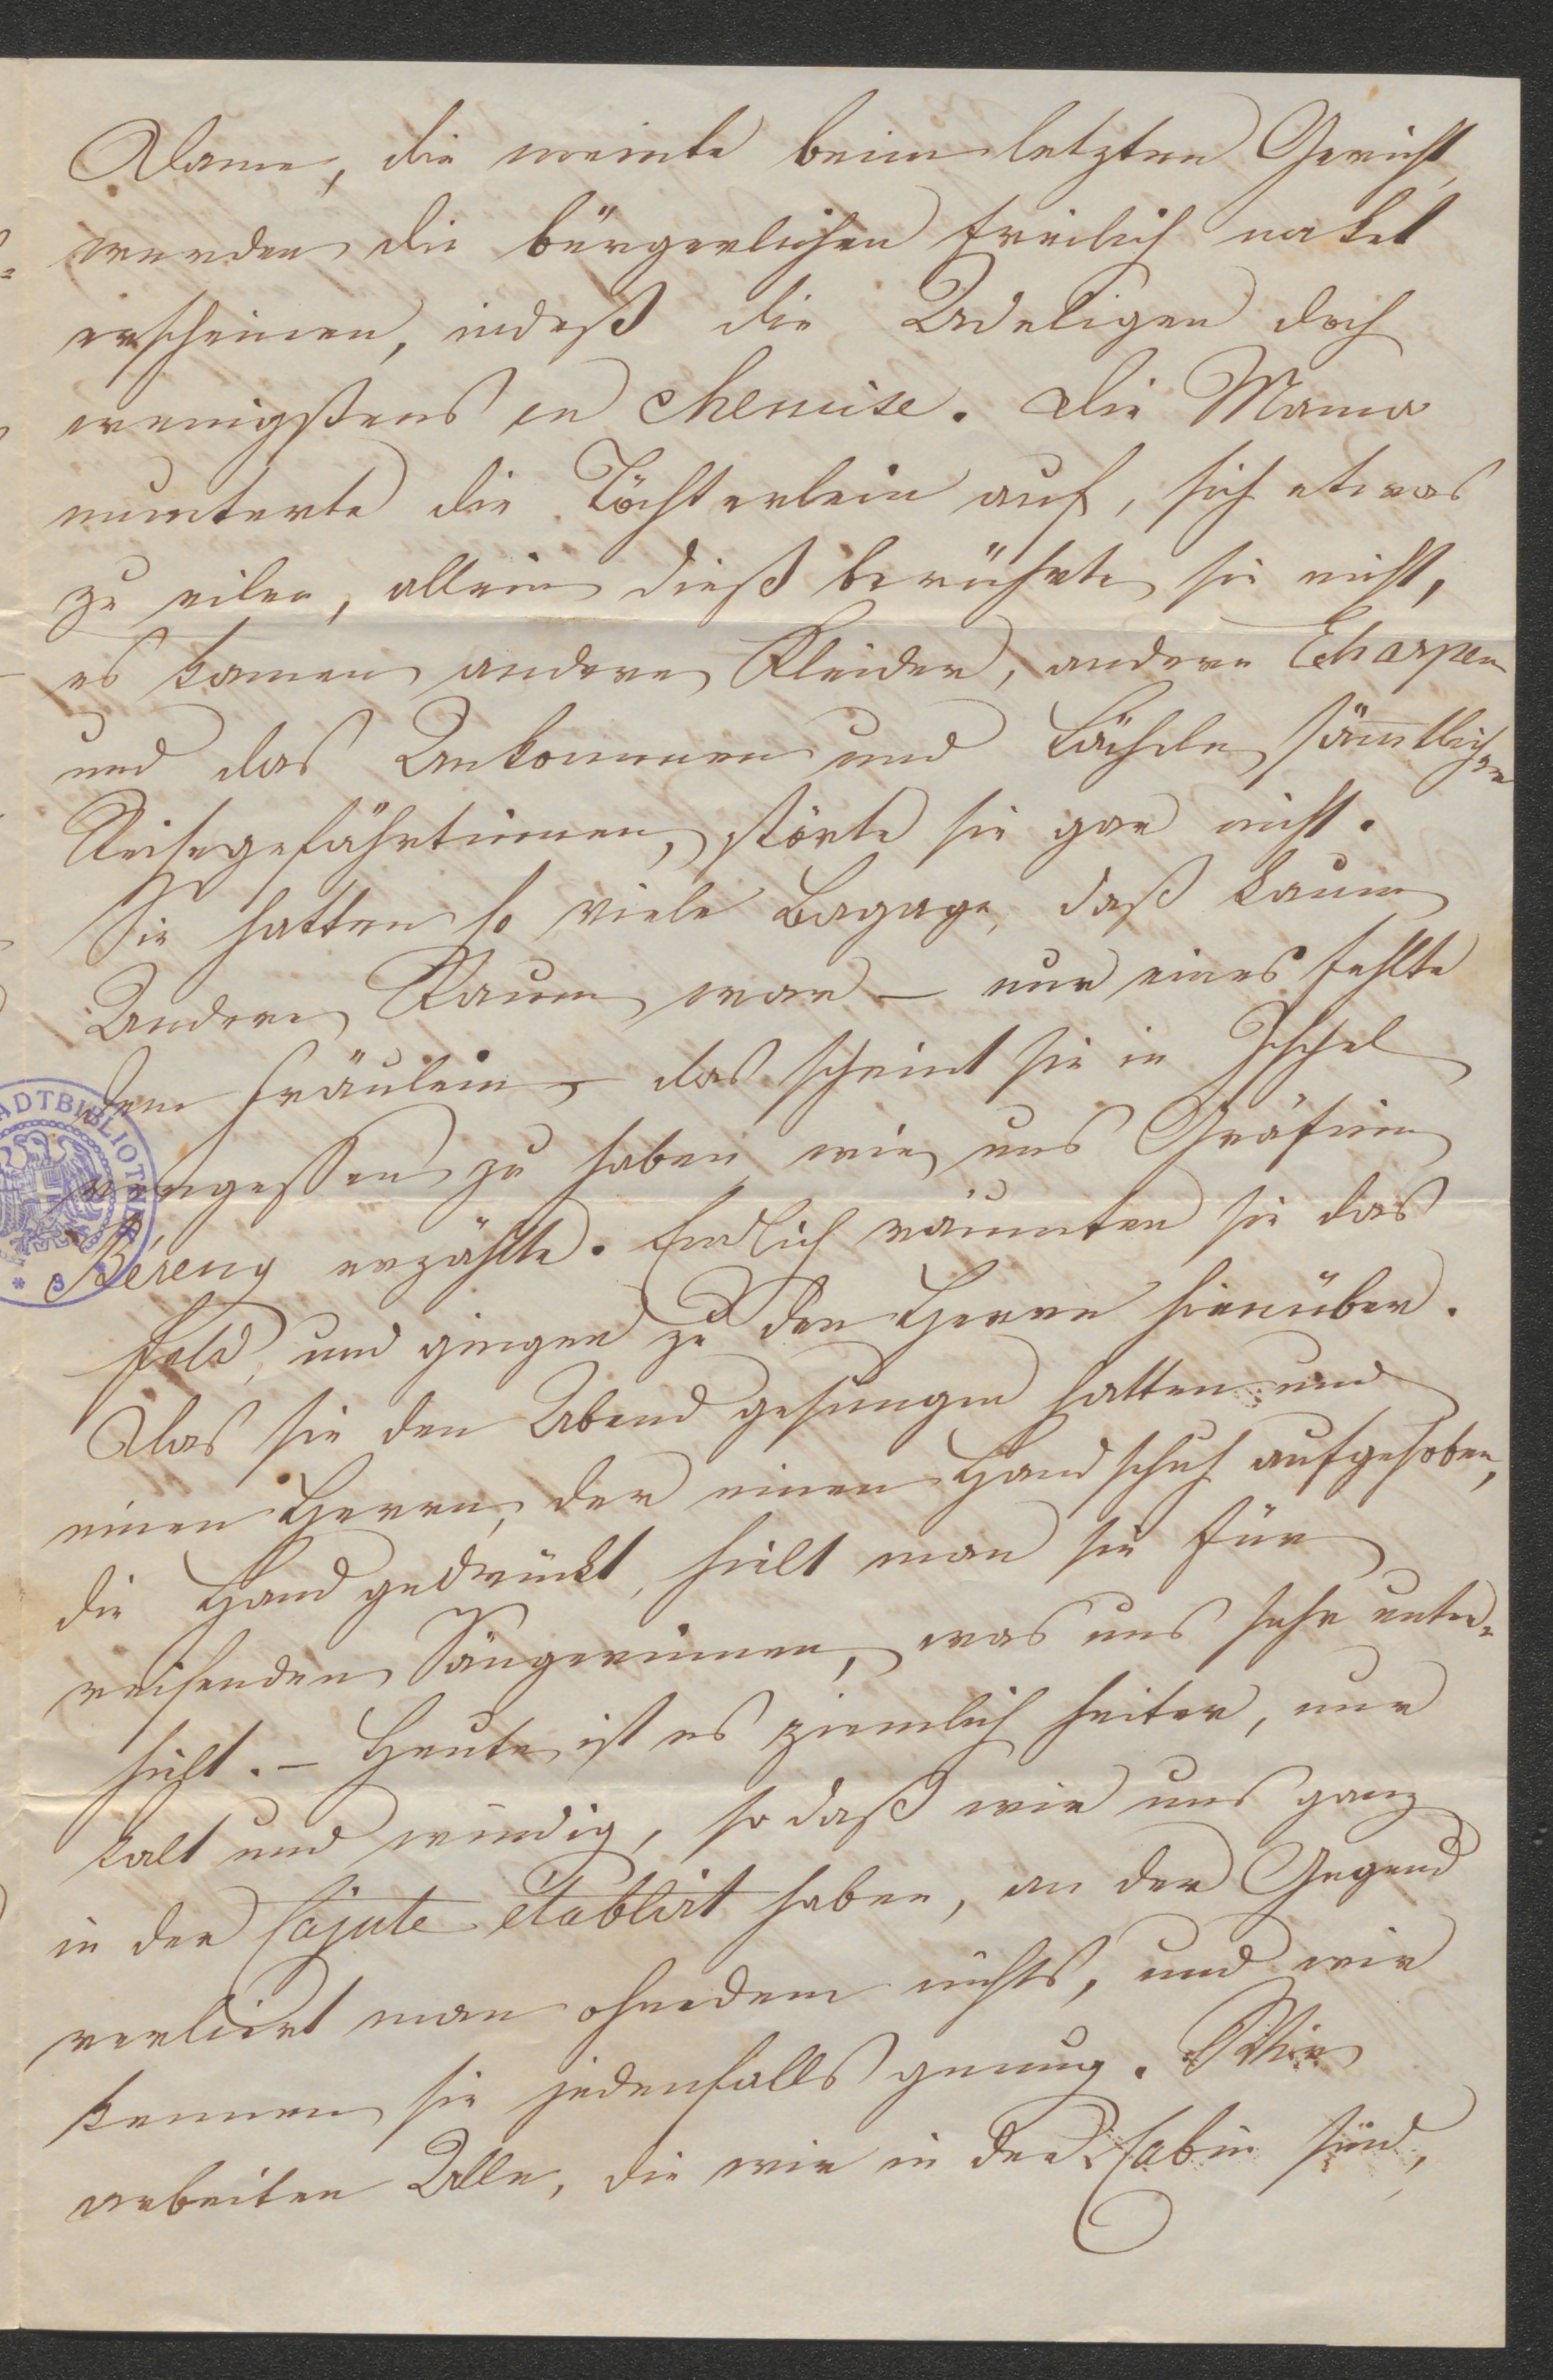 Dame, die meinte beim letzten Gericht,
werden die bürgerlichen freilich naket
erscheinen, indeß die Adeligen doch
wenigstens en chemise. Die Mama
munterte die Töchterlein auf, sich etwas
zu eilen, allein dieß berührte sie nicht,
es kamen andere Kleider, andere Echarpen
und das Ankommen und Lächeln sämtlicher
Reisegefährtinnen, störte sie gar nicht.
Sie hatten so viele Bagage, daß kaum
Andere Raum war – nur eines fehlte
dem Fräulein – das scheint sie in Ischel
vergessen zu haben wie uns Gräfinn
Béreny erzählte. Endlich räumten sie das
Feld, und gingen zu den Herrn hinüber.
Das sie den Abend gesungen hatten und
einen Herrn, der einen Handschuh aufgehoben,
die Hand gedrückt, hielt man sie für
reisenden Sängerinnen, was uns sehr unter-
hielt. – Heute ist es ziemlich heiter, nur
kalt und windig, so daß wir uns ganz
in der Cajute établirt haben, an der Gegend
verliert man ohnedem nichts, und wir
kennen sie jedenfalls genug. Wir
arbeiten Alle, die wir in der Cabin sind,
ADTBIBLIOTH